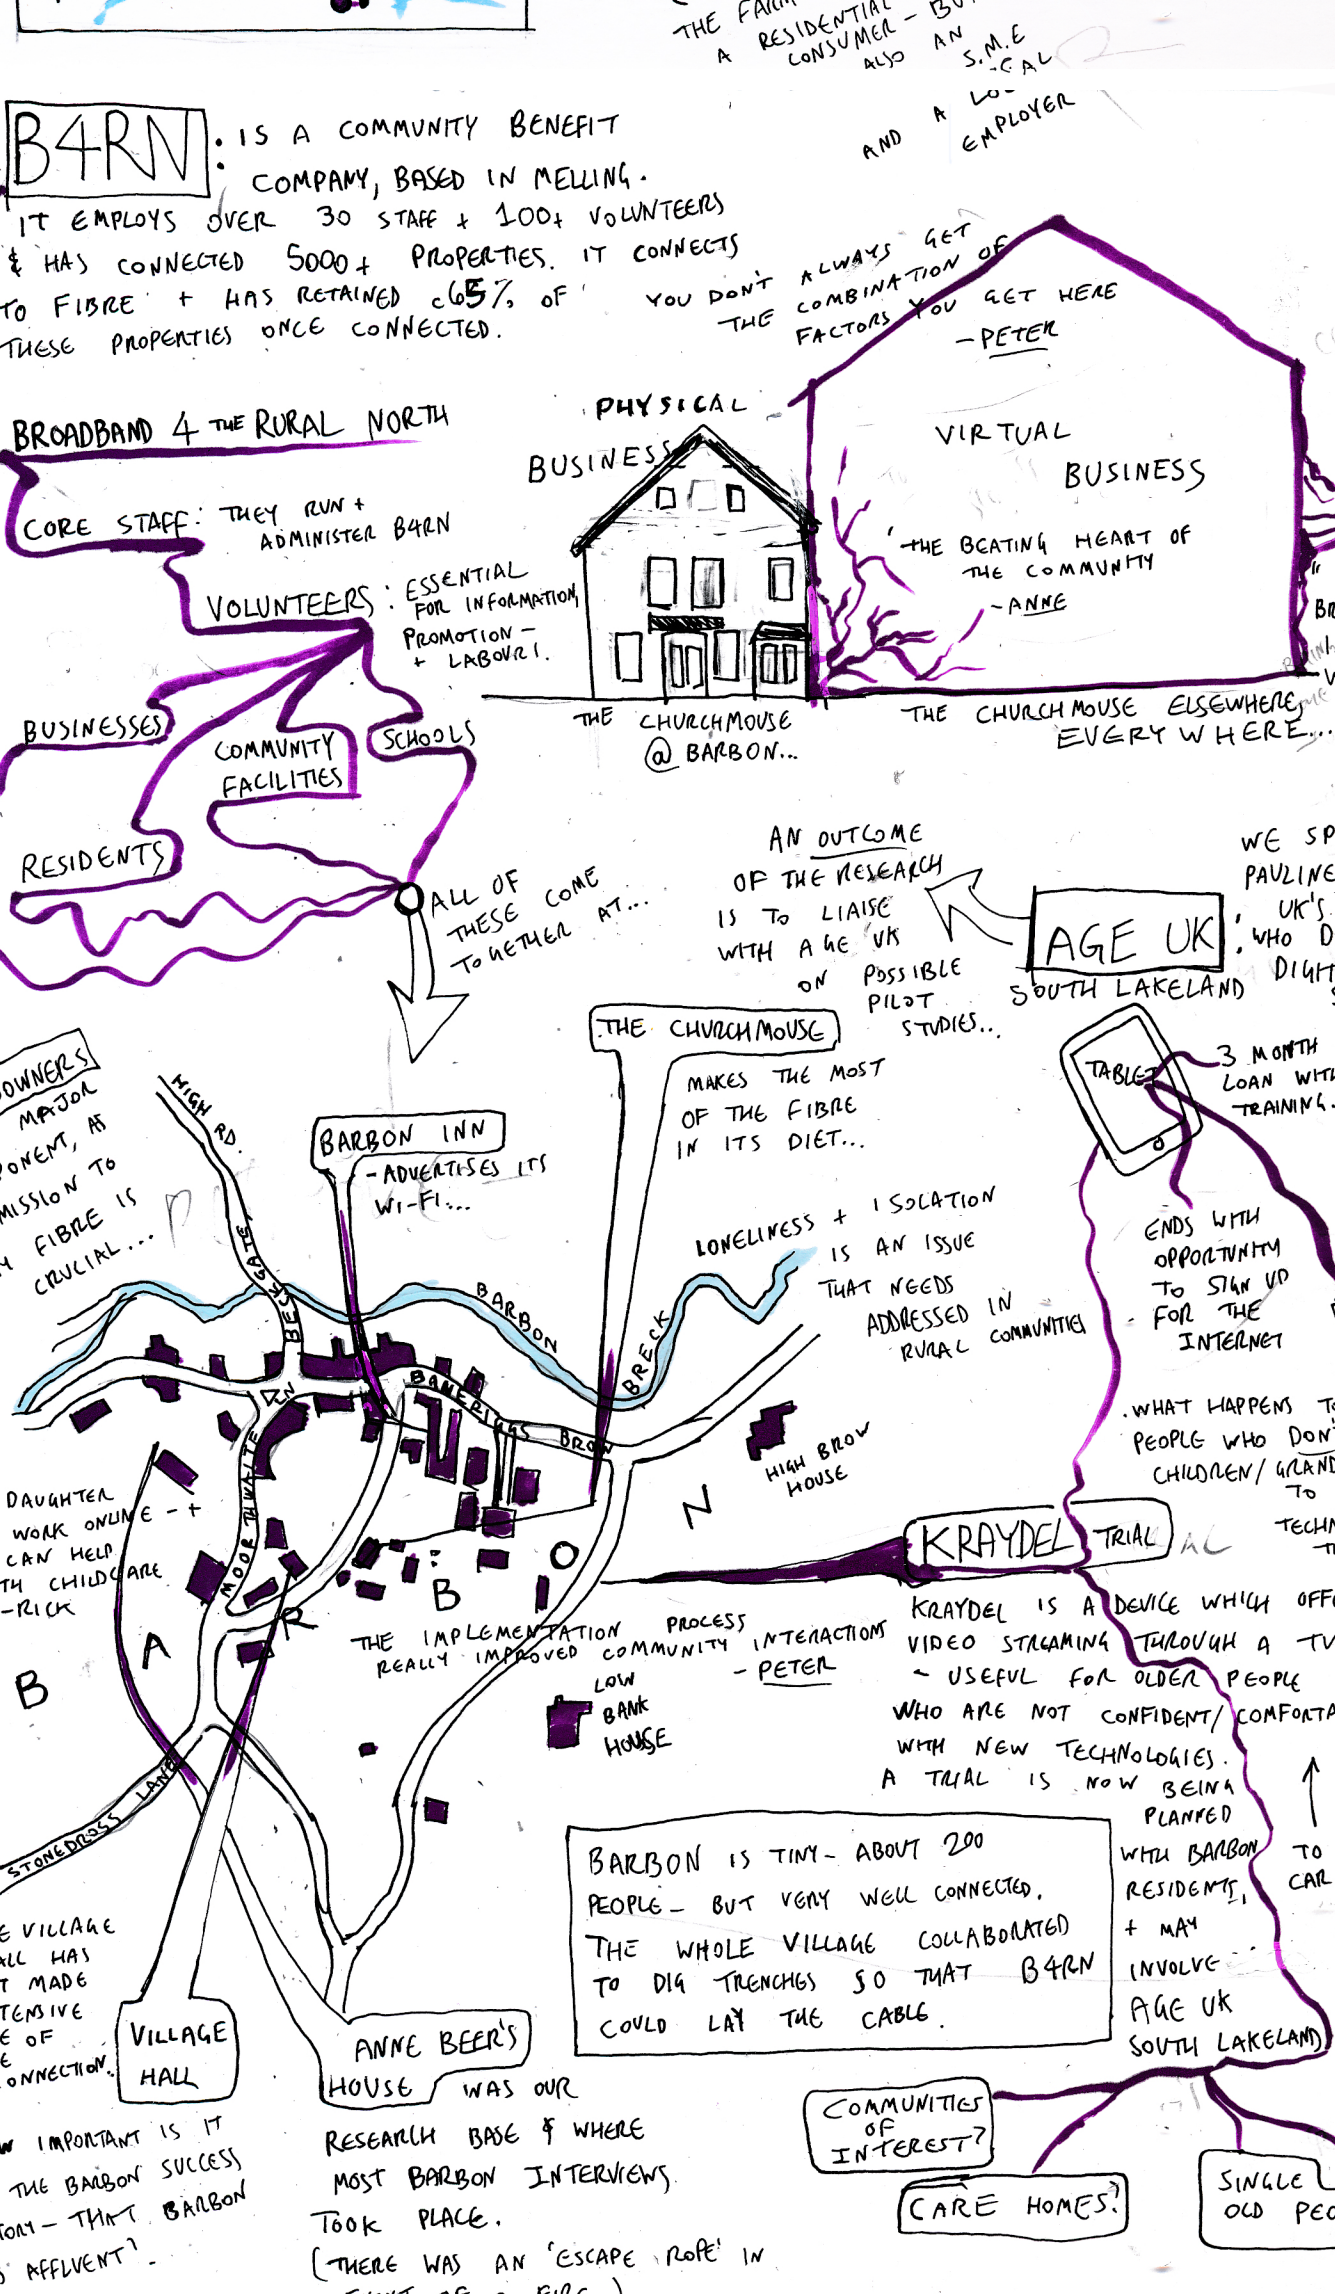 THE FARM
A RESIDENTIAL
CONSUMER - BUT
ALSO AN
S.M.E
AND A LOCAL
EMPLOYER
B4RN : IS A COMMUNITY BENEFIT
COMPANY, BASED IN MELLING.
IT EMPLOYS OVER 30 STAFF + 100+ VOLUNTEERS
& HAS CONNECTED 5000+ PROPERTIES. IT CONNECTS
TO FIBRE + HAS RETAINED c65% OF
THESE PROPERTIES ONCE CONNECTED.
YOU DON'T ALWAYS GET
THE COMBINATION OF
FACTORS YOU GET HERE
- PETER
BROADBAND 4 THE RURAL NORTH
CORE STAFF: THEY RUN +
ADMINISTER B4RN
VOLUNTEERS : ESSENTIAL
FOR INFORMATION,
PROMOTION -
+ LABOUR!.
BUSINESSES
COMMUNITY
FACILITIES
SCHOOLS
RESIDENTS
ALL OF
THESE COME
TOGETHER AT...
PHYSICAL
BUSINESS
THE CHURCHMOUSE
@ BARBON...
VIRTUAL
BUSINESS
'THE BEATING HEART OF
THE COMMUNITY
- ANNE
THE CHURCHMOUSE ELSEWHERE,
EVERYWHERE...
AN OUTCOME
OF THE RESEARCH
IS TO LIAISE
WITH AGE UK
ON POSSIBLE
PILOT
STUDIES...
AGE UK :
SOUTH LAKELAND
WE SP
PAULINE
UK'S
WHO D
DIGIT
TABLET
3 MONTH
LOAN WITH
TRAINING.
ENDS WITH
OPPORTUNITY
TO SIGN UP
FOR THE
INTERNET
OWNERS
MAJOR
PONENT, AS
MISSION TO
Y FIBRE IS
CRUCIAL...
HIGH RD.
BECKGATE
BARBON INN
- ADVERTISES ITS
WI-FI...
THE CHURCHMOUSE
MAKES THE MOST
OF THE FIBRE
IN ITS DIET...
LONELINESS + ISOLATION
IS AN ISSUE
THAT NEEDS
ADDRESSED IN
RURAL COMMUNITIES
BARBON BRECK
BANERIGGS BROW
MOORTHWAITE LN
HIGH BROW
HOUSE
B A R B O N
DAUGHTER
WORK ONLINE - +
CAN HELP
TH CHILDCARE
- RICK
THE IMPLEMENTATION PROCESS
REALLY IMPROVED COMMUNITY INTERACTIONS
- PETER
LOW
BANK
HOUSE
STONEDROSS LANE
.WHAT HAPPENS TO
PEOPLE WHO DON'T
CHILDREN/GRAND
TO
TECHN
KRAYDEL TRIAL
KRAYDEL IS A DEVICE WHICH OFF
VIDEO STREAMING THROUGH A TV
- USEFUL FOR OLDER PEOPLE
WHO ARE NOT CONFIDENT/COMFORTA
WITH NEW TECHNOLOGIES.
A TRIAL IS NOW BEING
PLANNED
WITH BARBON
RESIDENTS,
+ MAY
INVOLVE
AGE UK
SOUTH LAKELAND
TO
CAR
BARBON IS TINY - ABOUT 200
PEOPLE - BUT VERY WELL CONNECTED.
THE WHOLE VILLAGE COLLABORATED
TO DIG TRENCHES SO THAT B4RN
COULD LAY THE CABLE.
E VILLAGE
ALL HAS
T MADE
TENSIVE
E OF
E
ONNECTION..
VILLAGE
HALL
W IMPORTANT IS IT
THE BARBON SUCCESS
TORY - THAT BARBON
S AFFLUENT?
ANNE BEER'S
HOUSE WAS OUR
RESEARCH BASE & WHERE
MOST BARBON INTERVIEWS
TOOK PLACE.
(THERE WAS AN 'ESCAPE ROPE' IN
FIRE)
COMMUNITIES
OF
INTEREST?
CARE HOMES?
SINGLE
OLD PEO